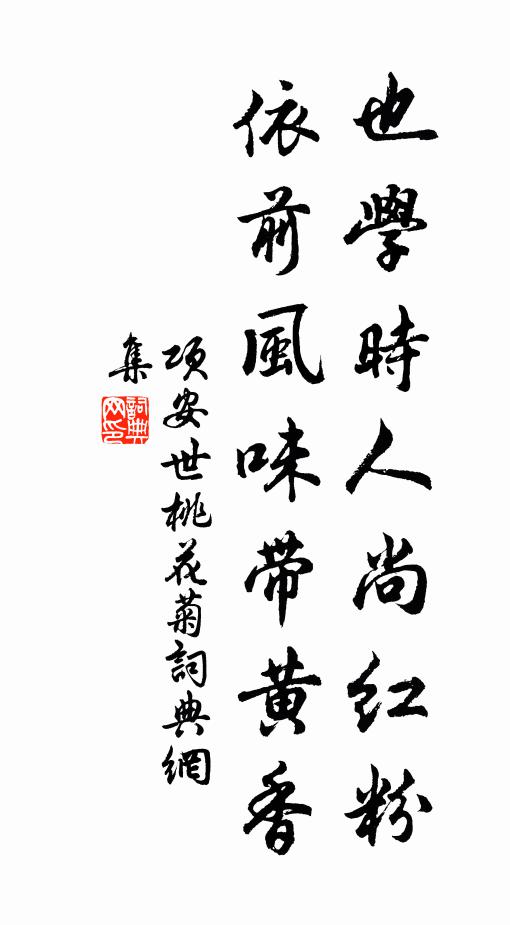 也學時人尚紅粉
依前風味帶黃香
項安世桃花菊詞典網
集
詞典網印